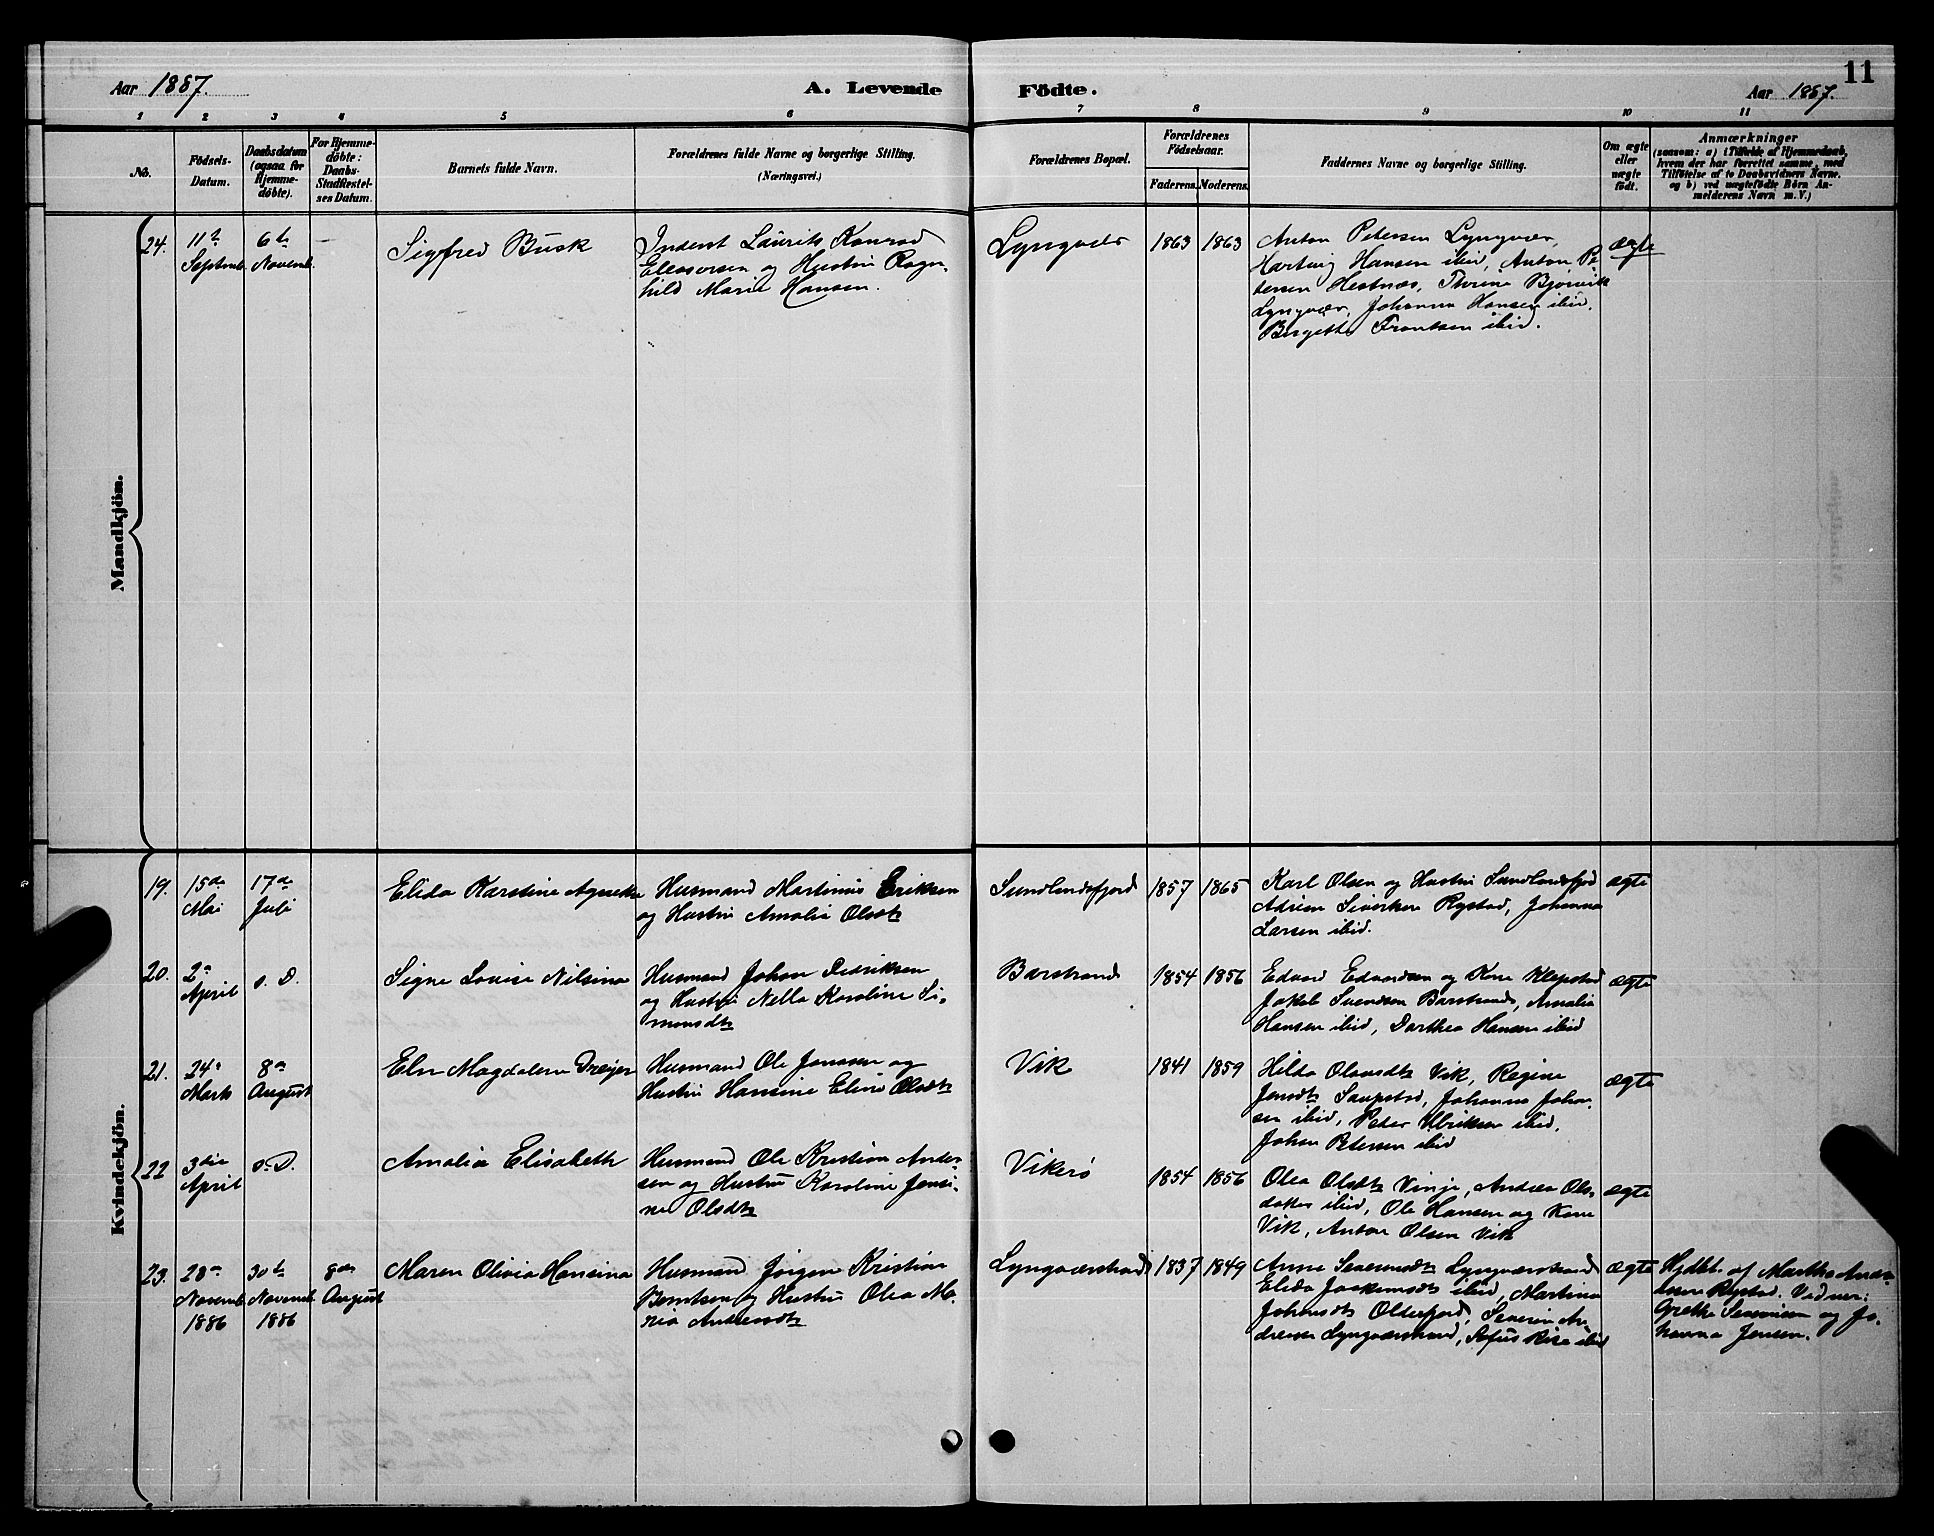 Aar 1887. A. Levende Födte. Aar 1887. 11
1 2 3 4 5 6 7 8 9 10 11
No.
Födsels-
Datum.
Daabsdatum
(ogsaa for
Hjemme-
döbte).
For Hjemme-
döbte:
Daabs-
Stadfæstel-
ses Datum.
Barnets fulde Navn.
Forældrenes fulde Navne og borgerlige Stilling.
(Næringsvei.)
Forældrenes Bopæl.
Forældrenes
Födselsaar.
Faderens. Moderens.
Faddernes Navne og borgerlige Stilling.
Om ægte
eller
uægte
födt.
Anmærkninger
(saasom: a) i Tilfælde af Hjemmedaab,
hvem der har forrettet samme, med
Tilföielse af to Daabsvidners Navne.
og b) ved uægtefödte Börn An-
melderens Navn m. V.)
Mandkjön.
24.
11te
Septemb.
6te
Novemb.
—
Sigfred Busk
Inderst Laurits Konrad
Eleasersen og Hustru Ragn-
hild Marie Hansen.
Lyngvær
1863 1863
Anton Petersen Lyngvær,
Hartvig Hansen ibid, Anton Pe-
tersen Hestnæs, Thrine Bjørvik
Lyngvær, Johanna Hansen ibid.
Bergette Frantsen ibid.
ægte
Kvindekjön.
19.
15de
Mai
17de
Juli
Elida Karstine Agnethe
Husmand Martinus Eriksen
og Hustru Amalia Olsdtr
Sundlandsfjord
1857 1865
Karl Olsen og Hustru Sundlandsfjord
Adrian Sivertsen Rystad, Johanna
Larsen ibid.
ægte
20.
2en
April
s. D.
Signe Lovise Nilsina
Husmand Johan Didriksen
og Hustru Nella Karoline Si-
monsdtr
Barstrand
1854 1856
Edvard Edvardsen og Kone Klepstad
Jakob Svendsen Barstrand, Amalia
Hansen ibid, Dorthea Hansen ibid
ægte
21.
24de
Marts
8de
August
Eln Magdalena Dreyer
Husmand Ole Jonssen og
Hustru Hansine Eline Olsdtr
Vik
1841 1859
Hilda Olavsdtr Vik, Regine
Jensdtr Saupstad, Johanna Johan-
sen ibid, Peder Ulriksen ibid,
Johan Petersen ibid
ægte
22
3die
April
s. D.
Amalia Elisabeth
Husmand Ole Kristian Ander-
sen og Hustru Karoline Jensi-
ne Olsdtr
Vikerø
1854 1856
Olea Olsdtr Vinje, Andrea Ols-
datter ibid, Ole Hansen og Kone
Vik, Anton Olsen Vik
ægte
23.
28de
Novemb.
1886
30te
Novemb.
1886
8de
August
Maren Olivia Hansina
Husmand Jørgen Kristian
Berntsen og Hustru Olea Ma-
ria Andersdtr
Lyngværstrand
1837 1849
Anne Lyngværstrand
Elida Joakimsdtr ibid, Martina
Johansdtr Olderfjord, Severin An-
dersen Lyngværstrand, Sofus Risø ibid
ægte
Hjdbt. af Martha Ander-
sen Rystad. Vidner:
Grethe Severinsen og Jo-
hanna Jensen.